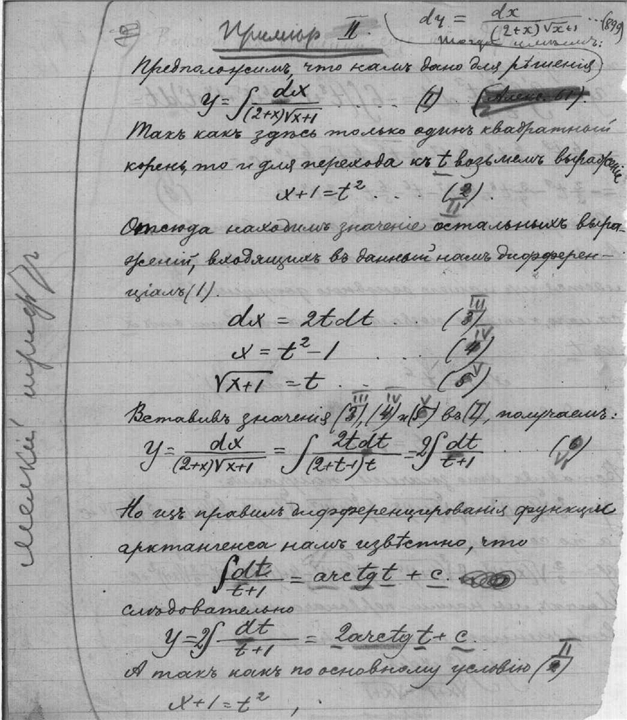 Примѣръ II. dy = dx / (2+x)√x+1 ... (899)
тогда имѣемъ:
Предположимъ, что намъ дано для рѣшенія
y = ∫ dx / (2+x)√x+1 . . . . (I)
Такъ какъ здѣсь только одинъ квадратный
корень, то и для перехода къ t возьмемъ выраженіе
x+1 = t² . . . (II)
Отсюда находимъ значеніе остальныхъ выра-
женій, входящихъ въ данный намъ дифферен-
ціалъ (1).
dx = 2tdt . . . (III)
x = t²-1 . . . (IV)
√x+1 = t . . . (V)
Вставивъ значенія (III), (IV) и (V) въ (I), получаемъ:
y = dx / (2+x)√x+1 = ∫ 2tdt / (2+t-1)t = 2∫ dt / t+1 . . (VI)
Но изъ правилъ дифференцированія функціи
арктангенса намъ извѣстно, что
∫ dt / t+1 = arctg t + c.
слѣдовательно
y = 2∫ dt / t+1 = 2arctg t + c.
А такъ какъ по основному условію (II)
x+1 = t² ,
Мелкій шрифтъ